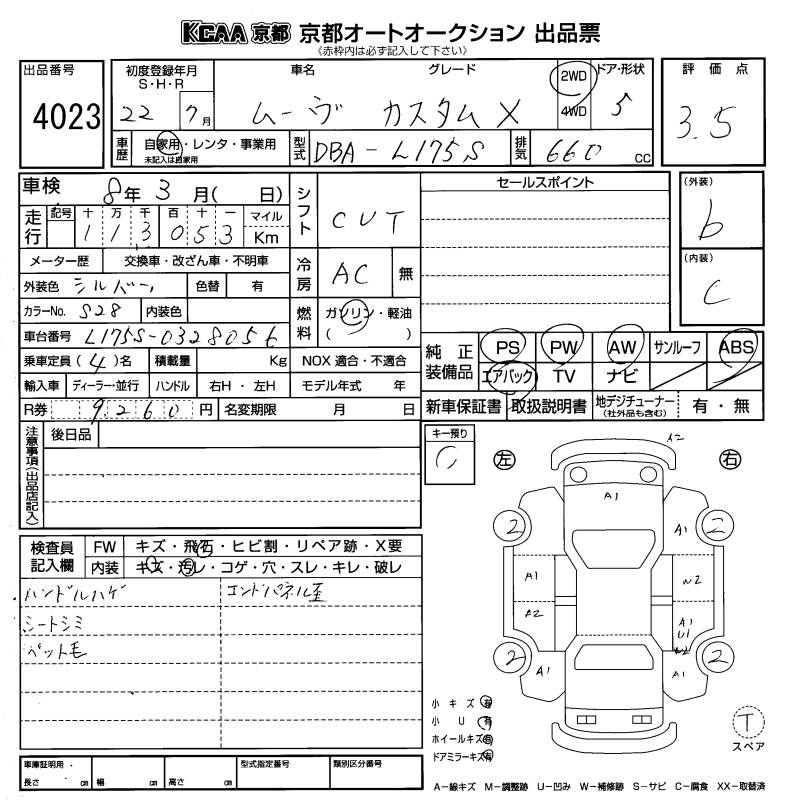 KCAA 京都 京都オートオークション 出品票
《赤枠内は必ず記入して下さい》
出品番号
4023
初度登録年月
S・H・R
22 7月
車名 グレード
ムーヴ カスタム X
2WD
4WD
ドア・形状
5
評価点
3.5
車歴
自家用・レンタ・事業用
未記入は自家用
型式
DBA-L175S
排気
660 cc
車検
8年3月( 日)
走行
記号 十 万 千 百 十 一 マイル
1 1 3 0 5 3 Km
メーター歴 交換車・改ざん車・不明車
外装色 シルバー 色替 有
カラーNo. S28 内装色
車台番号 L175S-0328056
乗車定員 (4)名 積載量 Kg
輸入車 ディーラー・並行 ハンドル 右H・左H
R券 9260円 名変期限 月 日
シフト
CVT
冷房
AC 無
燃料
ガソリン・軽油
( )
NOX 適合・不適合
モデル年式 年
セールスポイント
(外装)
b
(内装)
C
純正装備品
PS PW AW サンルーフ ABS
エアバック TV ナビ
新車保証書 取扱説明書 地デジチューナー
(社外品も含む)
有・無
注意事項(出品店記入)
後日品
キー預り
左
右
検査員記入欄
FW キズ・飛石・ヒビ割・リペア跡・X要
内装 キズ・汚レ・コゲ・穴・スレ・キレ・破レ
ハンドルハゲ エンドパネル歪
シートシミ
ペット毛
A2
A1
2 A1 2
A1 W2
A2 A1
U1
W2
2 A1 A1 2
小キズ 有
小U 有
ホイールキズ 有
ドアミラーキズ 有
T
スペア
車庫証明用・
長さ cm 幅 cm 高さ cm
型式指定番号
類別区分番号
A―線キズ M―調整跡 U―凹み W―補修跡 S―サビ C―腐食 XX―取替済